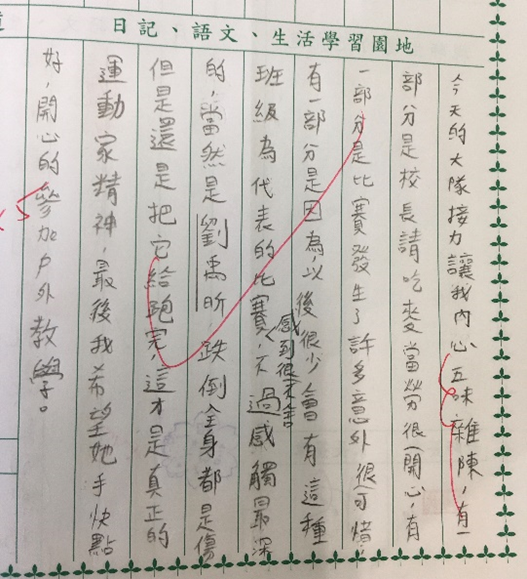 日記、語文、生活學習園地
今天的大隊接力讓我內心五味雜陳，有一
部分是校長請吃麥當勞很開心，有
一部分是比賽發生了許多意外很可惜，
有一部分是因為以後很少會有這種
班級為代表的比賽，感到很不舍，不過感觸最深
的，當然是劉禹昕，跌倒全身都是傷
但是還是把它給跑完，這才是真正的
運動家精神，最後我希望她手快點
好，開心的參加戶外教學。
×5